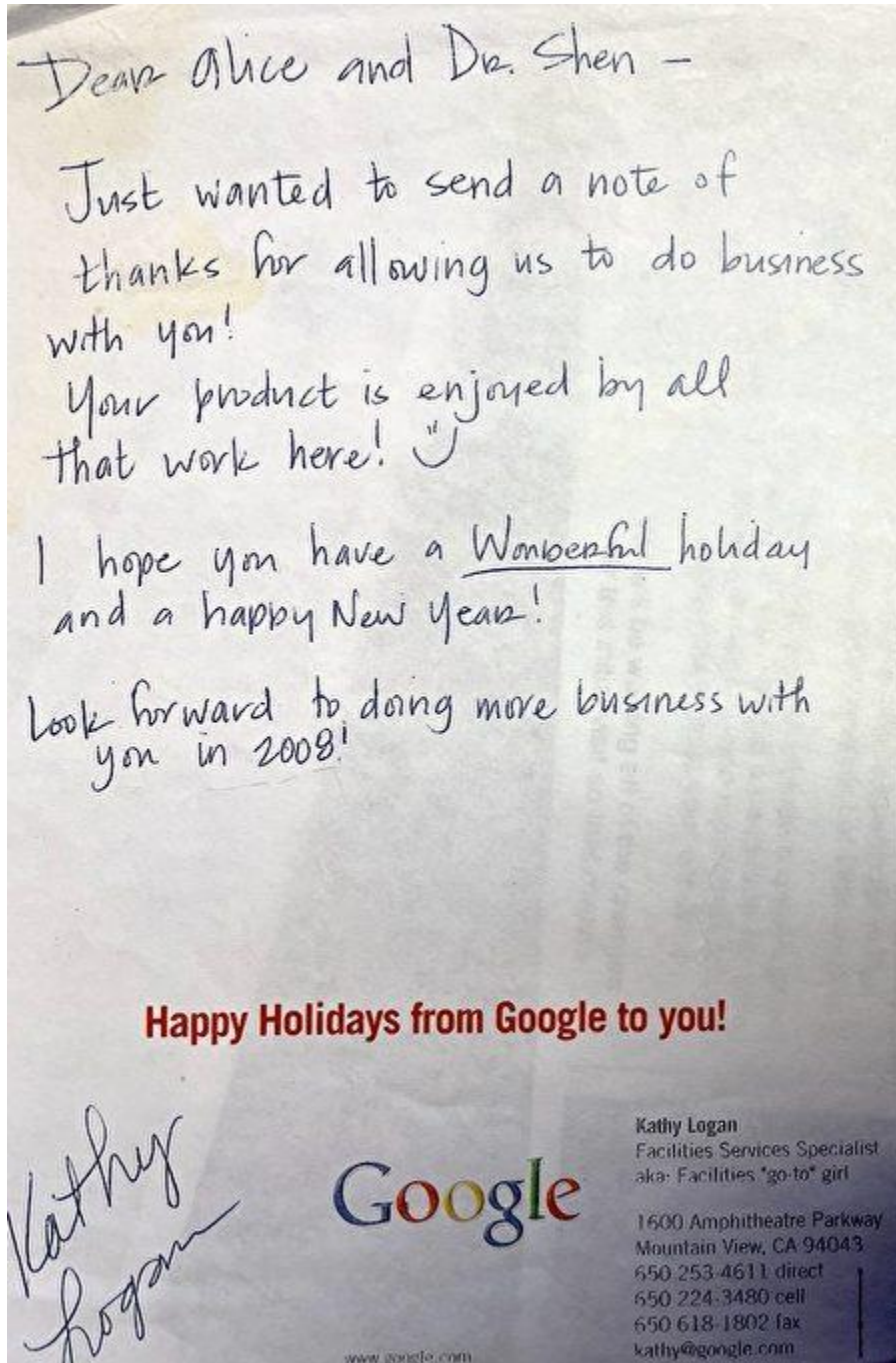 Dear Alice and Dr. Shen -
Just wanted to send a note of
thanks for allowing us to do business
with you!
Your product is enjoyed by all
that work here!
I hope you have a Wonderful holiday
and a happy New Year!
Look forward to doing more business with
you in 2008!
Happy Holidays from Google to you!
Kathy
Logan
Google
www.google.com
Kathy Logan
Facilities Services Specialist
aka: Facilities "go-to" girl
1600 Amphitheatre Parkway
Mountain View, CA 94043
650 253-4611 direct
650 224-3480 cell
650 618-1802 fax
kathy@google.com